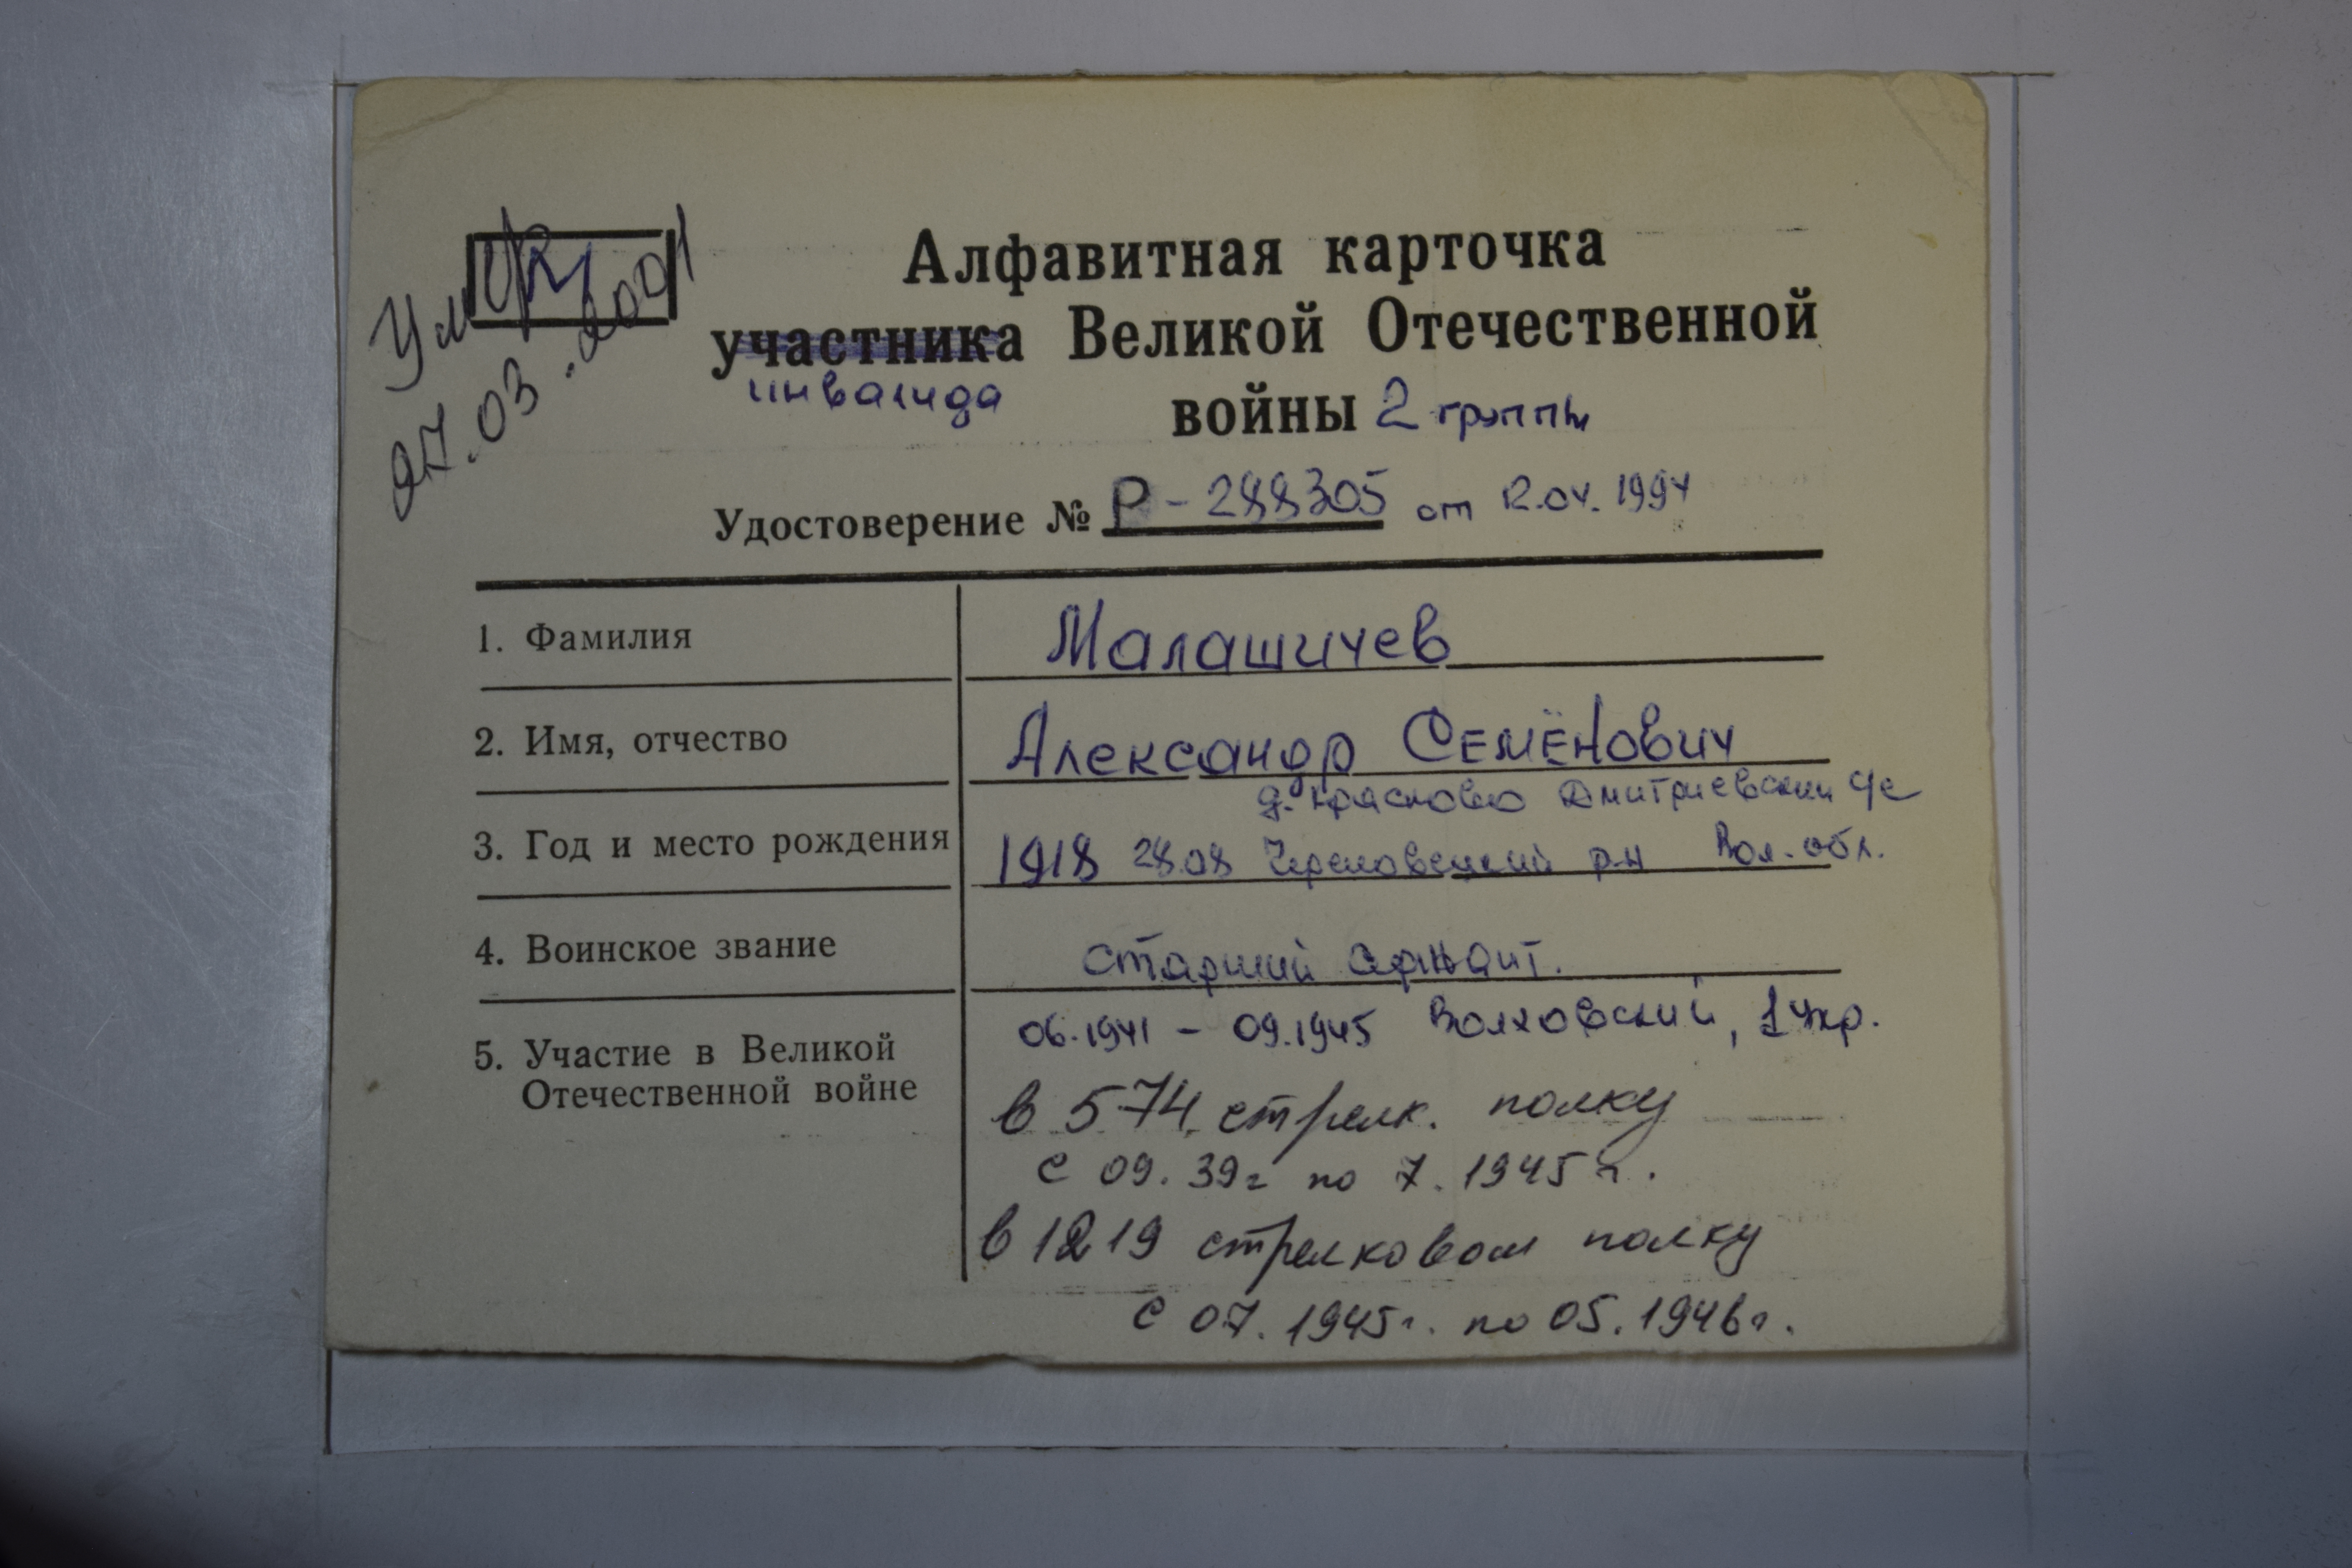 Умер
27.03.2001
Алфавитная карточка
участника Великой Отечественной
инвалида
войны 2 группы
Удостоверение № Р-288305 от 12.04.1994
1. Фамилия Малашичев
2. Имя, отчество Александр Семёнович
д. Красково Дмитриевский с/с
3. Год и место рождения 1918 28.08 Череповецкий р-н Вол. обл.
4. Воинское звание старший сержант.
06.1941 - 09.1945 Волховский, 1 Укр.
5. Участие в Великой
Отечественной войне
в 574 стрелк. полку
с 09.39г по 7.1945г.
в 1219 стрелковом полку
с 07.1945г. по 05.1946г.